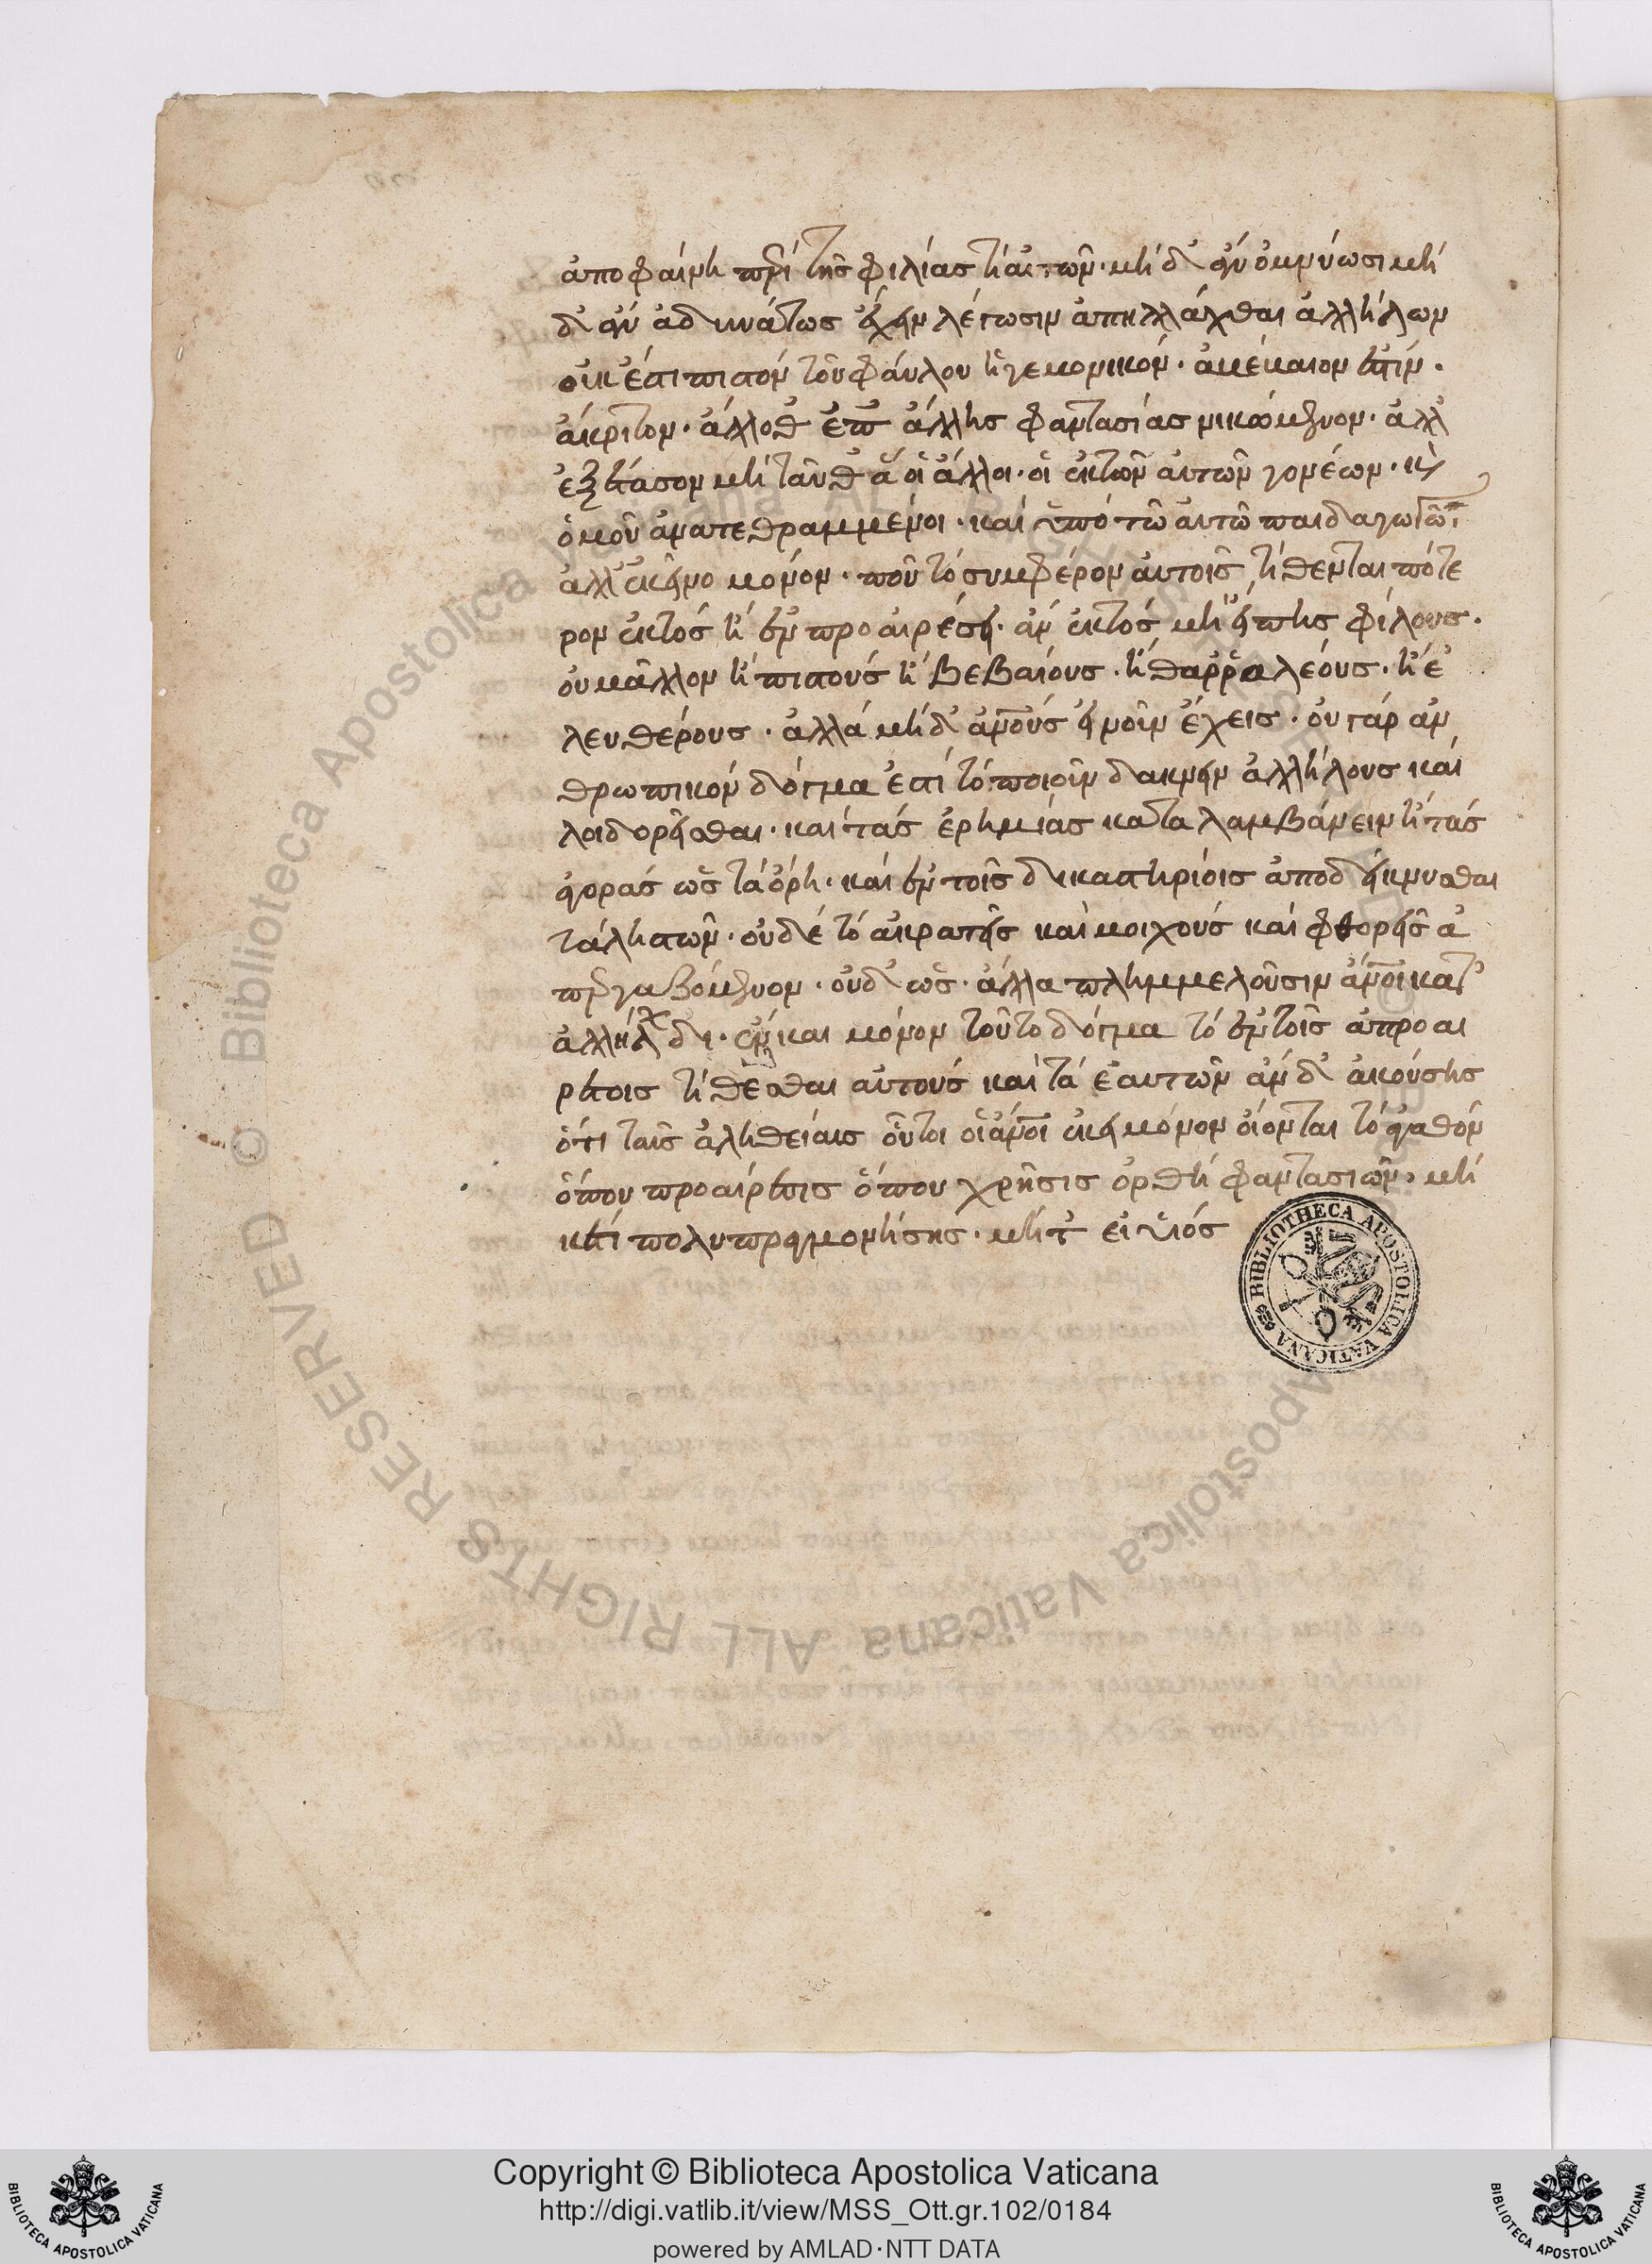 ἀποφαίνη περὶ τῆς φιλίας τῆς αὐτῶν. μὴ δ' ἂν ὀμνύωσι μὴ
δ' ἂν ἀδυνάτως ἔχειν λέγωσιν ἀπηλλάχθαι ἀλλήλων
οὐκ ἔστι πιστὸν τοῦ φαύλου ἡγεμονικόν. ἀνέκαιον ἐστίν.
ἄκριτον. ἄλλοθ' ἐπ' ἄλλης φαντασίας νικώμενον. ἀλλ'
ἐξέτασον μὴ ταῦθ' ἃ οἱ ἄλλοι. οἱ ἐκ τῶν αὐτῶν γονέων. καὶ
ὁμοῦ ἀνατεθραμμένοι. καὶ ὑπὸ τῶ αὐτῶ παιδαγωγῶ.
ἀλλ' ἐκεῖνο μόνον. ποῦ τὸ συμφέρον αὐτοῖς τίθενται πότε
ρον ἐκτὸς ἢ ἐν προαιρέσει. ἂν ἐκτός, μὴ εἴπης φίλους.
οὐ μᾶλλον ἢ πιστοὺς ἢ βεβαίους. ἢ θαῤῥαλέους. ἢ ἐ
λευθέρους. ἀλλὰ μὴ δ' ἀνους εἰ νοῦν ἔχεις. οὐ γὰρ ἀν
θρωπικὸν δόγμα ἐστὶ τὸ ποιοῦν δάκνειν ἀλλήλους καὶ
λοιδορεῖσθαι. καὶ τὰς ἐρημίας καταλαμβάνειν ἢ τὰς
ἀγορὰς ὡς τὰ ὄρη. καὶ ἐν τοῖς δικαστηρίοις ἀποδείκνυσθαι
τὰ ληστῶν. οὐδὲ τὸ ἀκρατεῖς καὶ μοιχοὺς καὶ φθορεῖς ἀ
περγαζόμενον. οὐδ' ὡς. ἄλλα πλημμελοῦσιν ἄνοι κατ'
ἀλλήλ δι. ἓν καὶ μόνον τοῦτο δόγμα τὸ ἐν τοῖς ἀπροαι
ρέτοις τίθεσθαι αὐτοὺς καὶ τὰ ἑαυτῶν ἂν δ' ἀκούσης
ὅτι ταῖς ἀληθείαις οὗτοι οἱ ἄνοι ἐκεῖ μόνον οἴονται τὸ ἀγαθὸν
ὅπου προαίρεσις ὅπου χρῆσις ὀρθὴ φαντασιῶν. μὴ
κέτι πολυπραγμονήσης. μήτ' εἰ υἱὸς
BIBLIOTHECA APOSTOLICA VATICANA
© Biblioteca Apostolica Vaticana ALL RIGHTS RESERVED
Copyright © Biblioteca Apostolica Vaticana
http://digi.vatlib.it/view/MSS_Ott.gr.102/0184
powered by AMLAD·NTT DATA
BIBLIOTECA APOSTOLICA VATICANA
BIBLIOTECA APOSTOLICA VATICANA